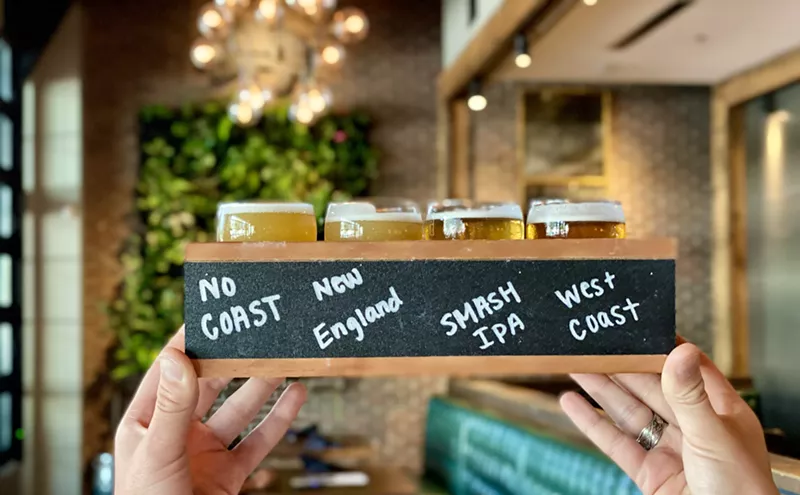 No
COAST
New
England
SMASH
IPA
West
Coast